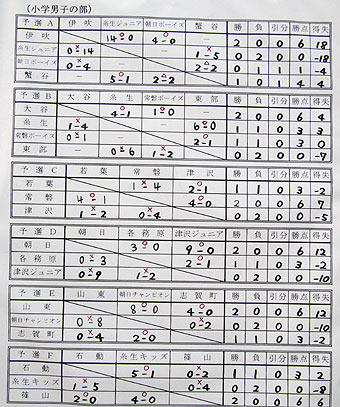 (小学男子の部)
予選A 伊吹 糸生ジュニア 朝日ボーイズ 蟹谷 勝 負 引分 勝点 得失
伊吹 14-0 4-0 2 0 0 6 18
糸生ジュニア 0-14 1-5 0 2 0 0 -18
朝日ボーイズ 0-4 2-2 0 1 1 1 -4
蟹谷 5-1 2-2 1 0 1 4 4
予選B 大谷 糸生 常磐ボーイズ 東部 勝 負 引分 勝点 得失
大谷 4-1 1-0 2 0 0 6 4
糸生 1-4 6-0 1 1 0 3 3
常磐ボーイズ 0-1 2-1 1 1 0 3 0
東部 0-6 1-2 0 2 0 0 -7
予選C 若葉 常磐 津沢 勝 負 引分 勝点 得失
若葉 1-4 2-1 1 1 0 3 -2
常磐 4-1 4-0 2 0 0 6 7
津沢 1-2 0-4 0 2 0 0 -5
予選D 朝日 各務原 津沢ジュニア 勝 負 引分 勝点 得失
朝日 3-0 9-0 2 0 0 6 12
各務原 0-3 2-1 1 1 0 3 -2
津沢ジュニア 0-9 1-2 0 2 0 0 -10
予選E 山東 朝日チャンピオン 志賀町 勝 負 引分 勝点 得失
山東 8-0 4-0 2 0 0 6 12
朝日チャンピオン 0-8 0-2 0 2 0 0 -10
志賀町 0-4 2-0 1 1 0 3 -2
予選F 石動 糸生キッズ 篠山 勝 負 引分 勝点 得失
石動 5-1 0-2 1 1 0 3 2
糸生キッズ 1-5 0-4 0 2 0 0 -8
篠山 2-0 4-0 2 0 0 6 6